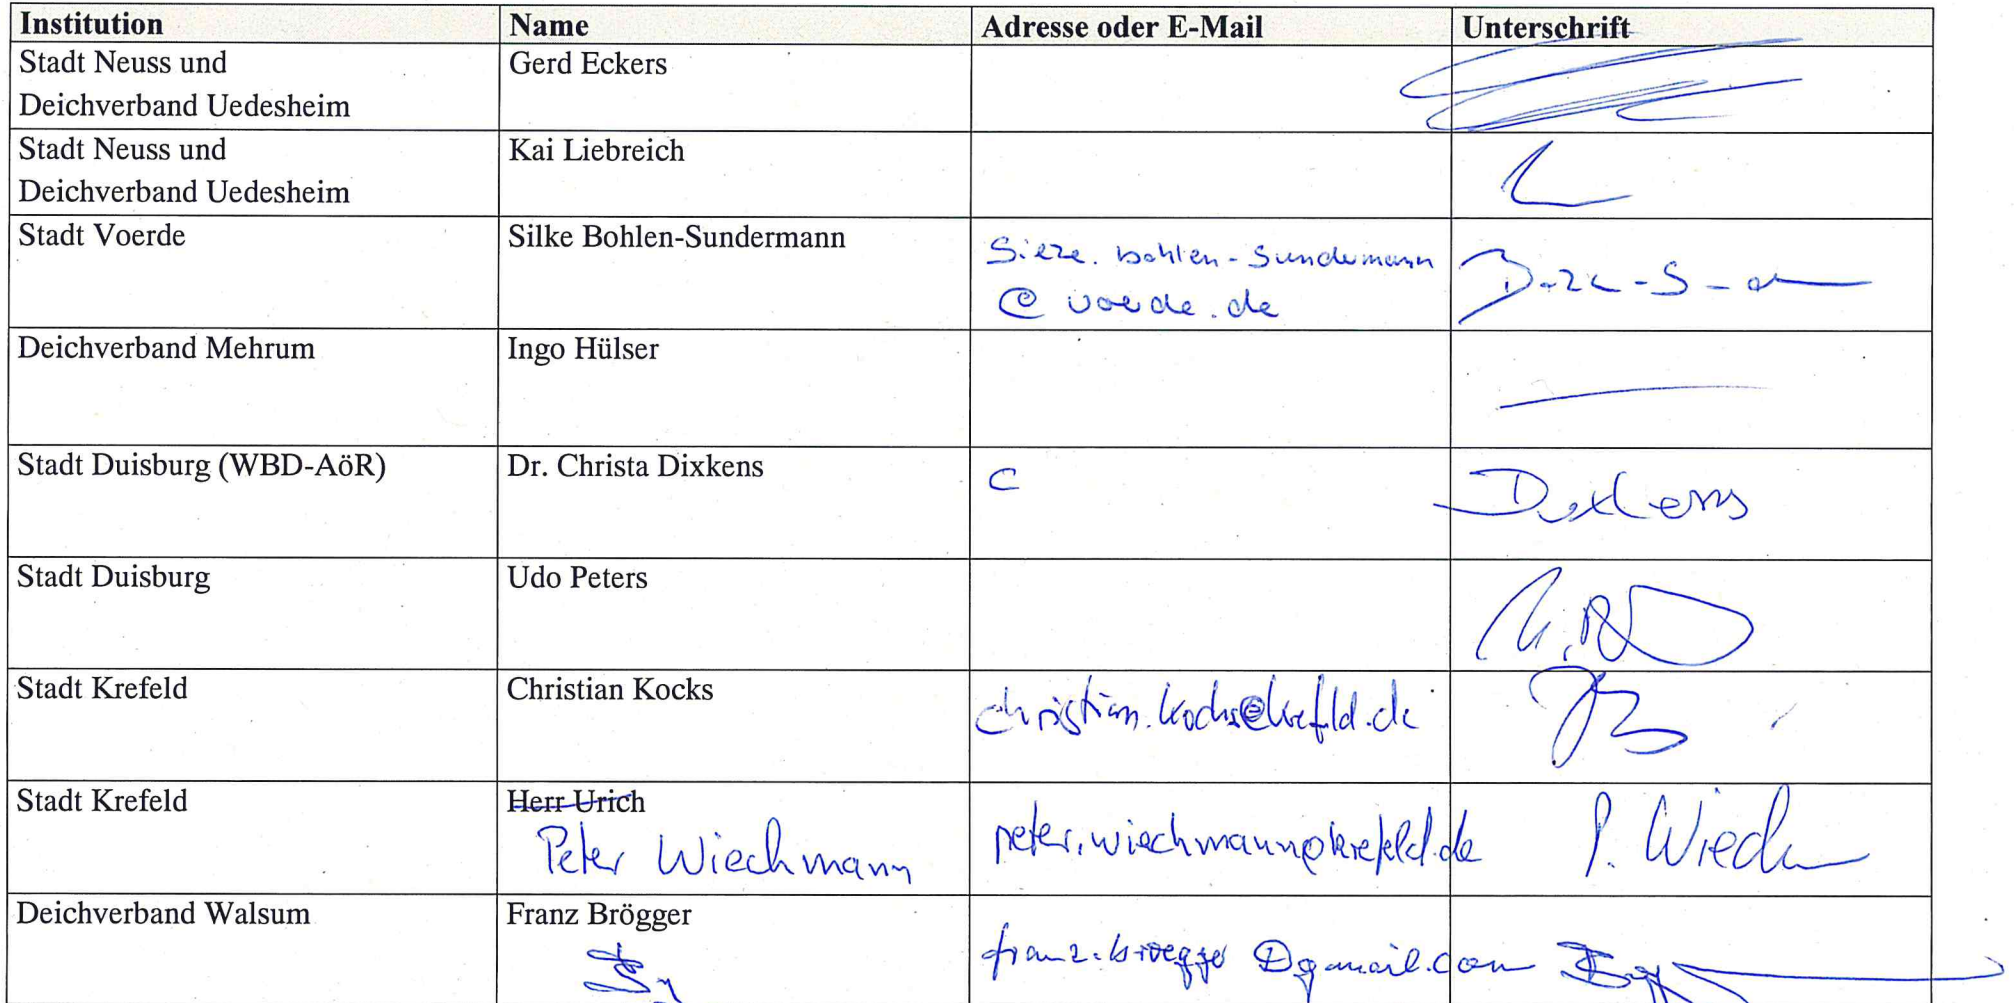 Institution Name Adresse oder E-Mail Unterschrift
Stadt Neuss und Gerd Eckers
Deichverband Uedesheim
Stadt Neuss und Kai Liebreich
Deichverband Uedesheim
Stadt Voerde Silke Bohlen-Sundermann silke.bohlen-sundermann
@voerde.de
Deichverband Mehrum Ingo Hülser
Stadt Duisburg (WBD-AöR) Dr. Christa Dixkens C Dixkens
Stadt Duisburg Udo Peters
Stadt Krefeld Christian Kocks christian.kocks@krefeld.de
Stadt Krefeld Herr Urich
Peter Wiechmann peter.wiechmann@krefeld.de P. Wiech
Deichverband Walsum Franz Brögger
franz.broegger@gmail.com